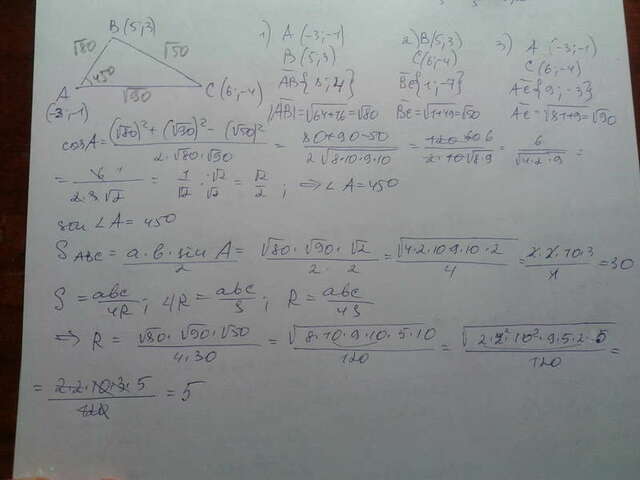 B(5;3)
√80
√50
45°
A
√90
C(6;-4)
(-3;-1)
1) A (-3;-1)
B (5;3)
AB{8;4}
|AB|=√64+16=√80
2) B(5;3)
C(6;-4)
BC{1;-7}
BC=√1+49=√50
3) A (-3;-1)
C (6;-4)
AC{9;-3}
AC=√81+9=√90
cosA = (√80)²+(√90)²-(√50)² / 2·√80·√90 = 80+90-50 / 2√8·10·9·10 = 120 60 6 / 2·10√8·9 = 6 / √4·2·9 =
= 6 1 / 2·3√2 = 1/√2 · √2/√2 = √2/2 ; ⇒ ∠A=45°
∠A=45°
S ABC = a·b·sin A / 2 = √80·√90·√2 / 2·2 = √4·2·10·9·10·2 / 4 = 2·2·10·3 / 4 = 30
S = abc/4R ; 4R = abc/S ; R = abc/4S
⇒ R = √80·√90·√50 / 4·30 = √8·10·9·10·5·10 / 120 = √2·2²·10²·9·5·2·5 / 120 =
= 2·2·10·3·5 / 120 = 5